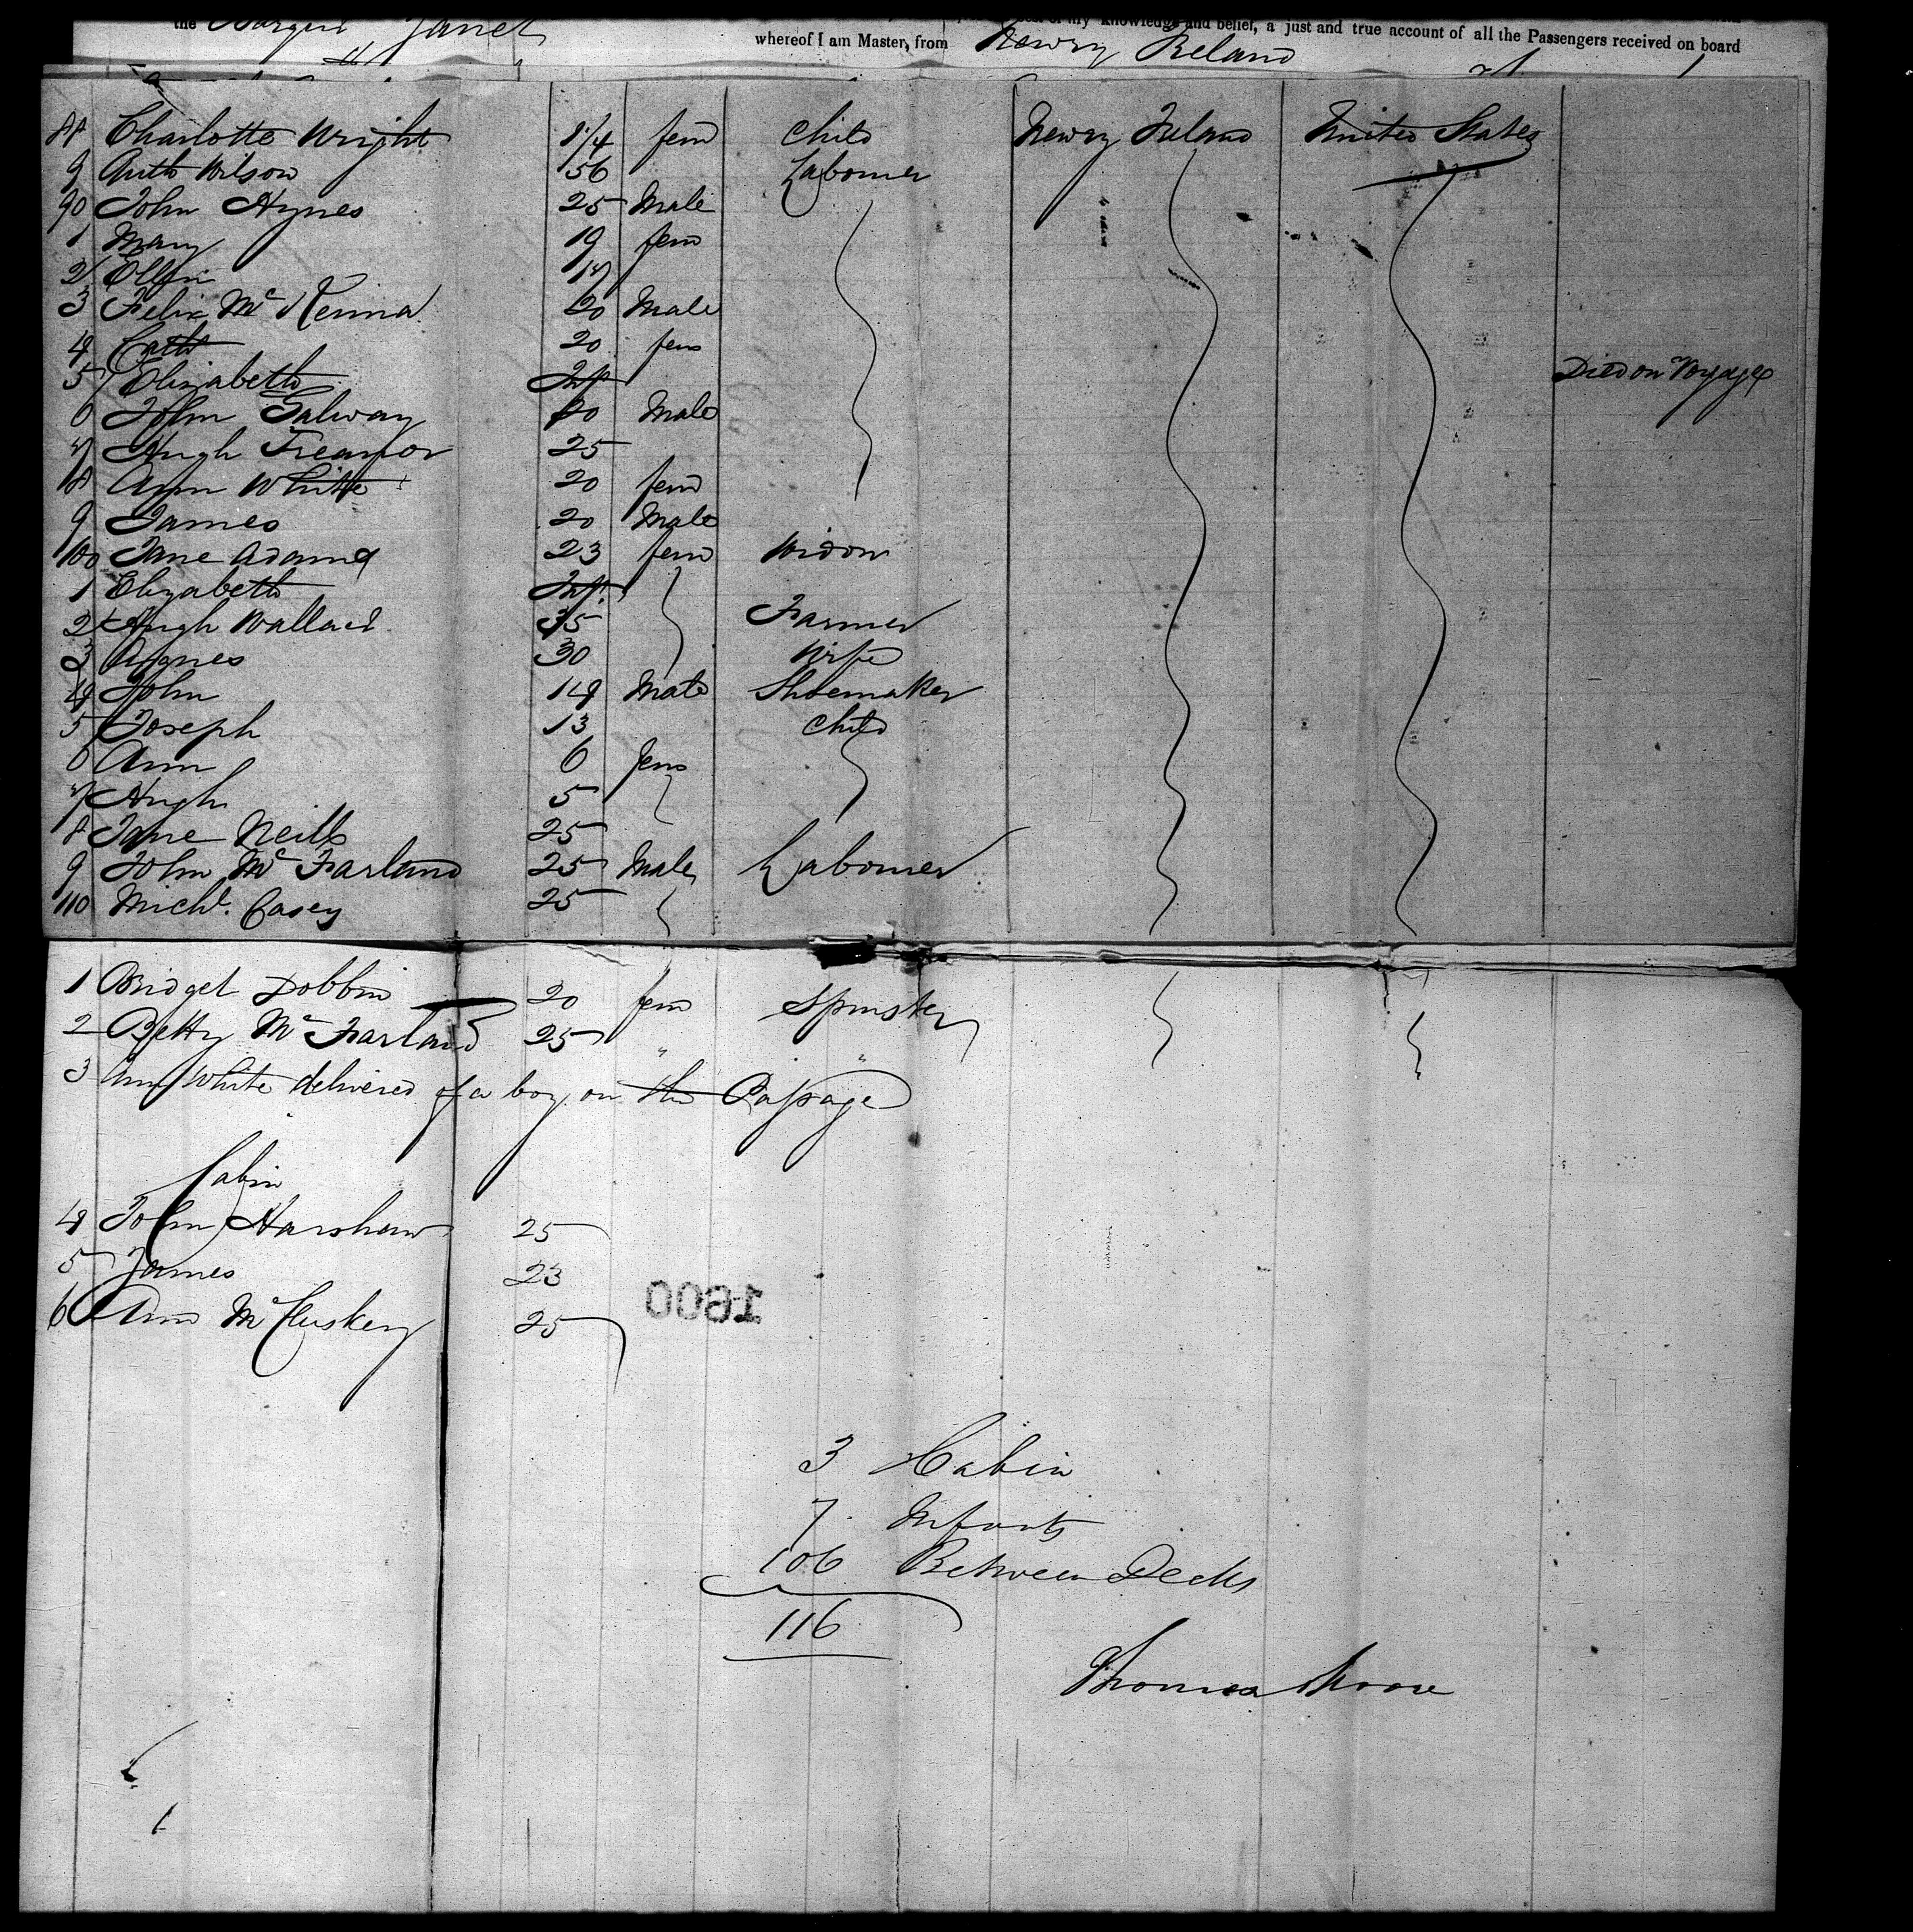 the Barque Janet
of my knowledge and belief, a just and true account of all the Passengers received on board
whereof I am Master, from Newry Ireland
88 Charlotte Wright 8/4 fem Child Newry Ireland United States
9 Wilson 56 Labourer
90 John Hynes 25 Male
1 Mary 19 fem
2 Ellen 17
3 Felix Mc Kenna 20 Male
4 Cath 20 fem
5 Elizabeth Inf Died on Voyage
6 John Galway 20 Male
7 Hugh Treanor 25
8 Ann White 20 fem
9 James 20 Male
100 Jane Adams 23 fem Widow
1 Elizabeth Inf.
2 Hugh Wallace 35 Farmer
3 Agnes 30 Wife
4 John 14 Male Shoemaker
5 Joseph 13 Child
6 Ann 6 fem
7 Hugh 5
8 Jane Neills 25
9 John Mc Farland 25 Male Labourer
110 Michl. Casey 25
1 Bridget Dobbin 20 fem Spinster
2 Betty Mc Farland 25 " "
3 Ann White delivered of a boy on the Passage
Cabin
4 John Harshaw 25
5 James 23
6 Ann McCluskey 25
1600
3 Cabin
7 Infants
106 Between Decks
116
Thomas Moore